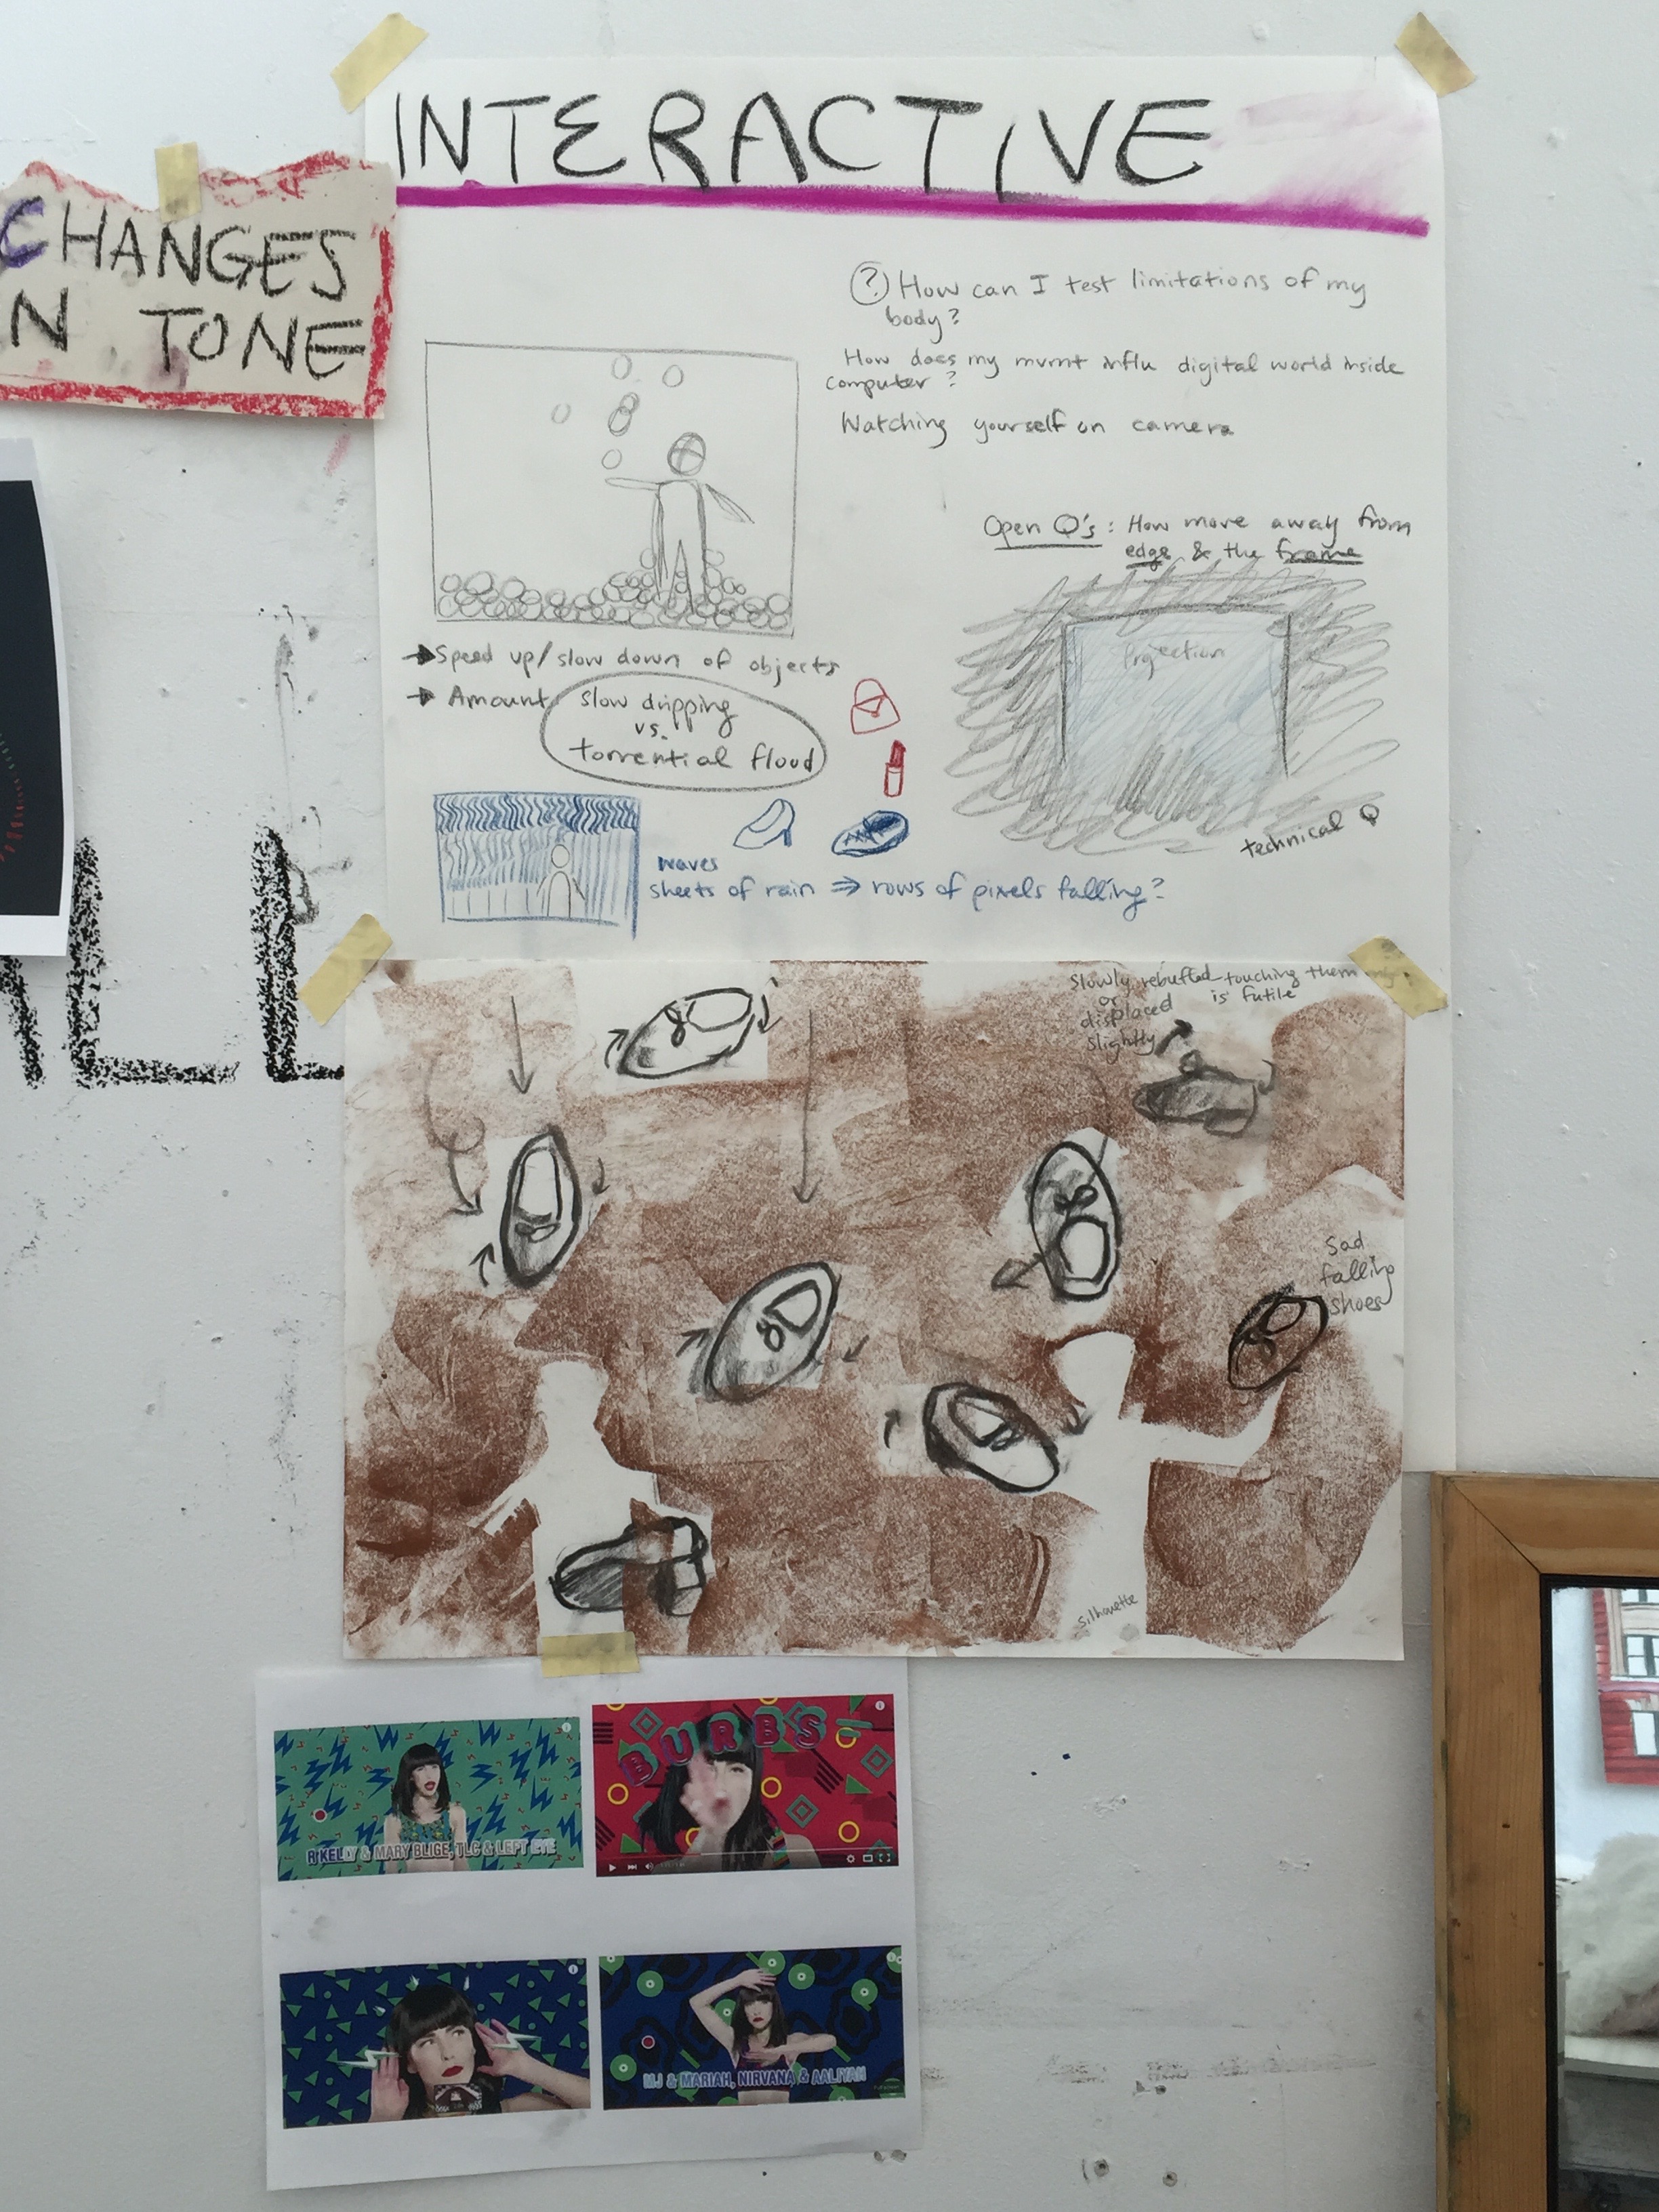 INTERACTIVE
CHANGES
N TONE
? How can I test limitations of my
body?
How does my mvmt influ digital world inside
computer?
Watching yourself on camera
Open Q's: How move away from
edge & the frame
Projection
technical Q
→ Speed up/slow down of objects
→ Amount
slow dripping
vs.
torrential flood
waves
sheets of rain ⇒ rows of pixels falling?
Slowly rebuffed touching them
or is futile
displaced
slightly
Sad
falling
shoes
silhouette
R KELLY & MARY BLIGE, TLC & LEFT EYE
BURBS
MJ & MARIAH, NIRVANA & AALIYAH